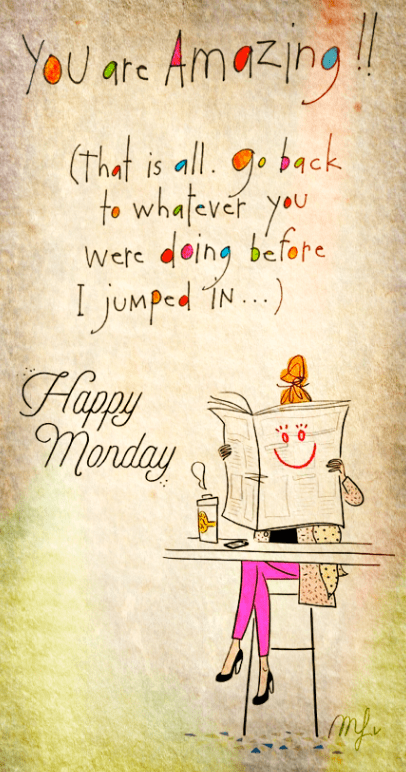 You are Amazing!!
(That is all. Go back
to whatever you
were doing before
I jumped in...)
Happy
Monday